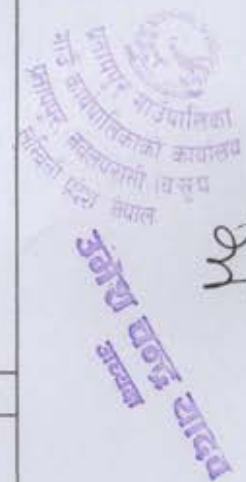 प्रतापपुर गाउँपालिका
गाउँ कार्यपालिकाको कार्यालय
प्रतापपुर, नवलपरासी (ब.सु.प)
लुम्बिनी प्रदेश नेपाल
उमेश चन्द्र यादव
अध्यक्ष